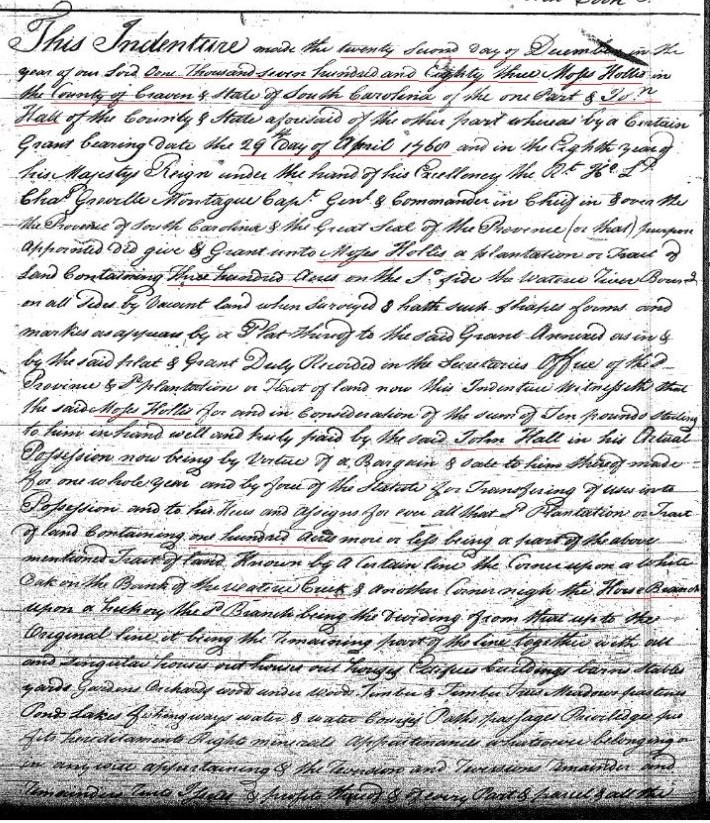 This Indenture made the twenty second day of December in the
year of our Lord One Thousand seven hundred and Eighty three Moses Hollis in
the County of Craven & State of South Carolina of the one Part & Jo.n
Hall of the County & State aforesaid of the other part whereas by a Certain
Grant bearing date the 29th day of April 1768 and in the Eighth year of
his Majestys Reign under the hand of his Excellency the Rt. Ho. Ld.
Chas. Greville Montague Capt. Genl. & Commander in Chief in & over the
the Province of South Carolina & the Great Seal of the Province (or that) purpose
Appointed did give & Grant unto Moses Hollis a plantation or Tract of
Land Containing Three hundred Acres on the So. side the Wateree River Bound
on all sides by Vacant land when Surveyed & hath such Shapes forms and
marks as appears by a Plat thereof to the said Grant Annexed as in &
by the said plat & Grant Duly Recorded in the Secretaries Office of the
Province & Sd. plantation or Tract of land now this Indenture Witnesseth that
the said Moses Hollis for and in Consideration of the sum of Ten pounds sterling
to him in hand well and truly paid by the said John Hall in his Actual
Possession now being by Virtue of a Bargain & sale to him thereof made
for one whole year and by force of the Statute for Transfering of uses into
Possession and to his Heirs and Assigns for ever all that Sd. Plantation or Tract
of land Containing one hundred Acres more or less being a part of the above
mentioned Tract of land Known by A Certain line the Corner upon a White
Oak on the Bank of the Wateree Creek & Another Corner nigh the Horse Branch
upon a hickory the Sd. Branch being the Dividing from that up to the
Original line it being the Remaining part of the line together with all
and Singular houses out houses out houses Edifices buildings barns stables
yards Gardens Orchards wood under Wood Timber & Timber Trees Meadows pastures
Ponds Lakes fishing ways water & water Courses Paths passages Priviledges pro
fits hereditaments Right minerals Appurtenances whatsoever belonging or
in any wise appertaining & the Reversion and Reversions Remainder and
Remainders Rents Issues & profits thereof & of every Part & parcel & all the